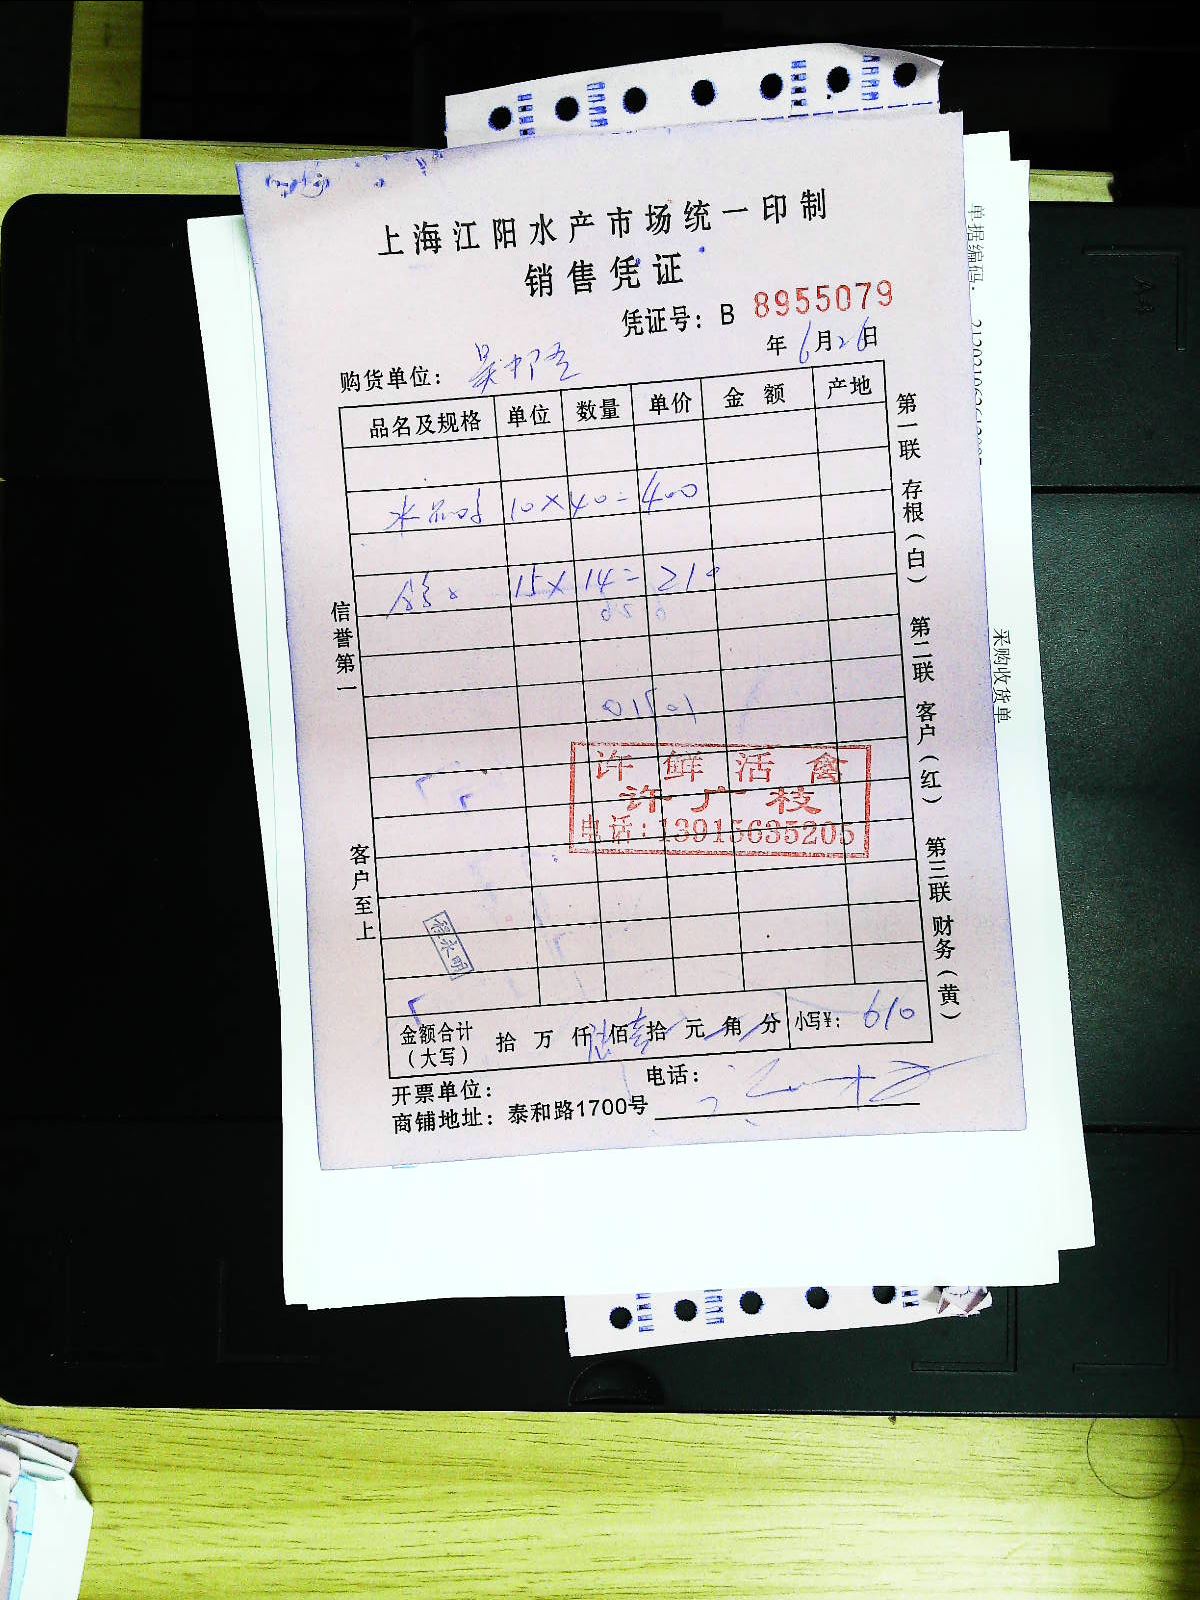 上海江阳水产市场统一印制
销售凭证
凭证号：B 8955079
年6月26日
购货单位：
品名及规格 单位 数量 单价 金额 产地
10×40=400
15×14=210
许鲜活禽
许广枝
电话:13915635205
程永明
金额合计（大写） 拾万仟陆佰壹拾元角分 小写¥：610
开票单位： 电话：
商铺地址：泰和路1700号
信誉第一 客户至上
第一联 存根（白） 第二联 客户（红） 第三联 财务（黄）
单据编码：
采购收货单